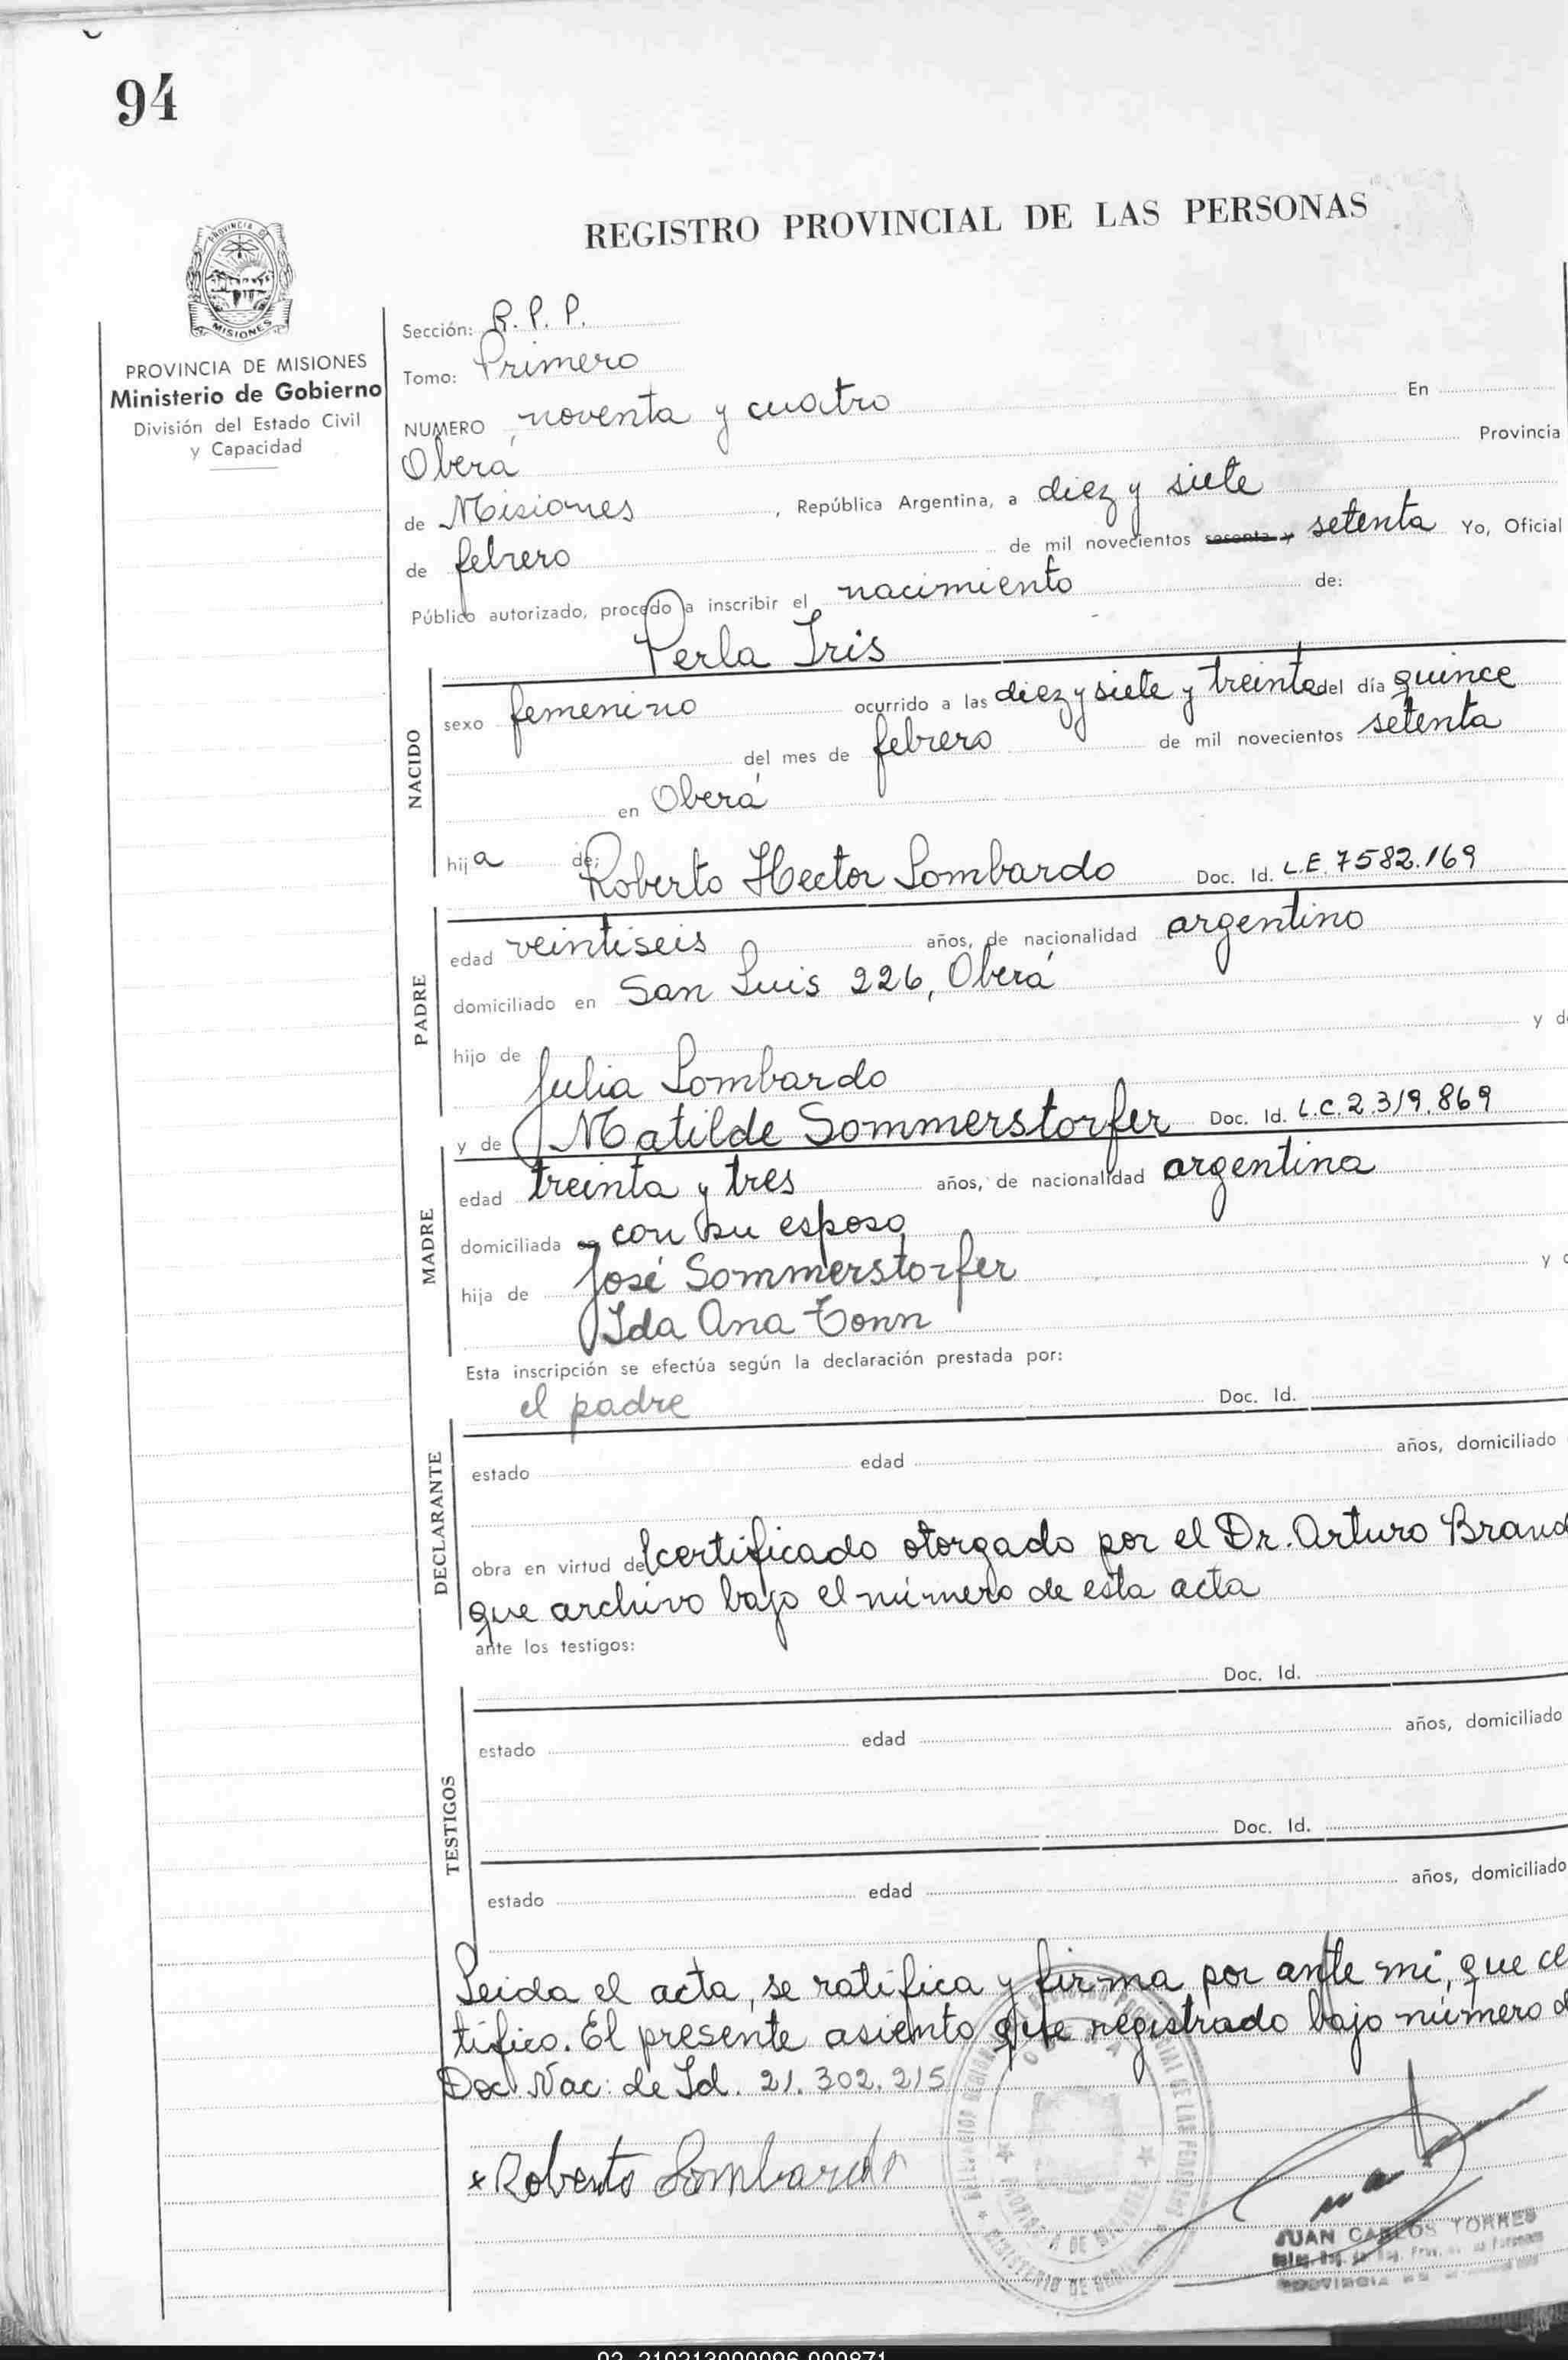 94
REGISTRO PROVINCIAL DE LAS PERSONAS
PROVINCIA DE MISIONES
Ministerio de Gobierno
División del Estado Civil
y Capacidad
Sección: R. P. P.
Tomo: Primero
NUMERO noventa y cuatro En
Oberá Provincia
de Misiones, República Argentina, a diez y siete
de febrero de mil novecientos sesenta y setenta Yo, Oficial
Público autorizado, procedo a inscribir el nacimiento de:
Perla Iris
NACIDO
sexo femenino ocurrido a las diez y siete y treinta del día quince
del mes de febrero de mil novecientos setenta
en Oberá
hija de:
Roberto Hector Lombardo Doc. Id. L.E. 7582.169
PADRE
edad veintiseis años, de nacionalidad argentino
domiciliado en San Luis 226, Oberá
hijo de y d
Julia Lombardo
y de Matilde Sommerstorfer Doc. Id. L.C. 2.319.869
MADRE
edad treinta y tres años, de nacionalidad argentina
domiciliada en con su esposo
hija de José Sommerstorfer y
Ida Ana Tonn
Esta inscripción se efectúa según la declaración prestada por:
el padre Doc. Id.
DECLARANTE
estado edad años, domiciliado
obra en virtud del certificado otorgado por el Dr. Arturo Brand
que archivo bajo el número de esta acta
ante los testigos:
Doc. Id.
TESTIGOS
estado edad años, domiciliado
Doc. Id.
estado edad años, domiciliado
Leida el acta, se ratifica y firma por ante mi, que ce
tifico. El presente asiento que registrado bajo número d
Doc. Nac: de Id. 21.302.215
x Roberto Lombardo
JUAN CARLOS TORRES
PROVINCIA DE